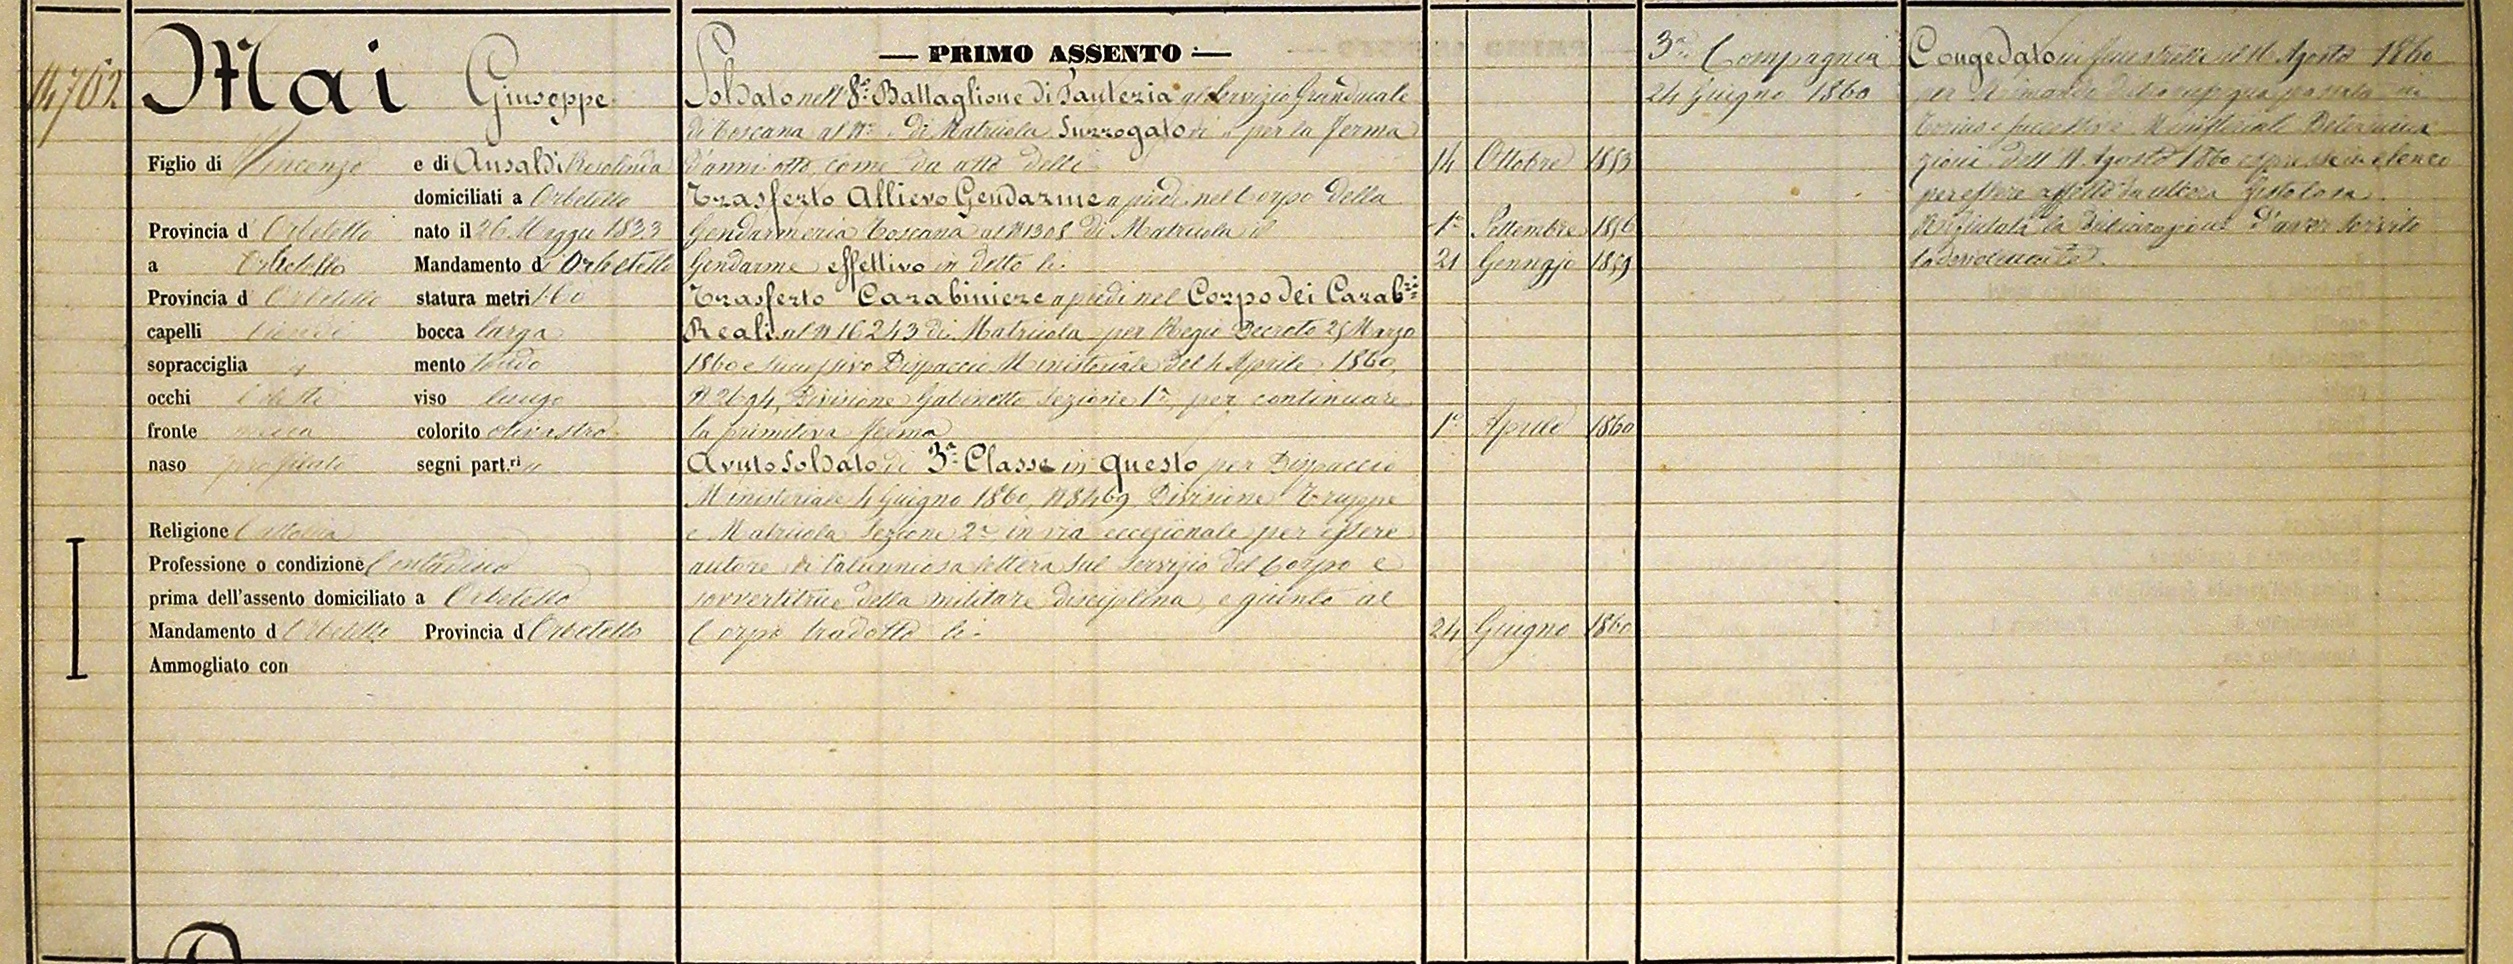 14762
Mai Giuseppe
Figlio di Vincenzo e di Ansaldi Rosolinda
domiciliati a Orbetello
Provincia d' Orbetello nato il 26 Maggio 1833
a Orbetello Mandamento di Orbetello
Provincia d Orbetello statura metri 1.60
capelli biondi bocca larga
sopracciglia mento tondo
occhi celesti viso lungo
fronte colorito olivastro
naso profilato segni part.ri
Religione Cattolica
Professione o condizione Contadino
prima dell'assento domiciliato a Orbetello
Mandamento d Orbetello Provincia d Orbetello
Ammogliato con
— PRIMO ASSENTO —
Soldato nell' 8° Battaglione di Fanteria al Servizio Granducale
di Toscana al N° " di Matricola Surrogato di " per la ferma
d'anni otto, come da atto delli 14 Ottobre 1853
Trasferto Allievo Gendarme a piedi nel Corpo della
Gendarmeria Toscana al N 1308 di Matricola il 1° Settembre 1856
Gendarme effettivo in detto li 21 Gennajo 1859
Trasferto Carabiniere a piedi nel Corpo dei Carab.ri
Reali al N 16243 di Matricola per Regio Decreto 25 Marzo
1860 e successivo Dispaccio Ministeriale del 4 Aprile 1860,
N 2694, Divisione Gabinetto Sezione 1a, per continuare
la primitiva ferma 1° Aprile 1860
Avuto Soldato di 3a Classe in questo per Dispaccio
Ministeriale 4 Giugno 1860, N 8469 Divisione Truppe
e Matricola Sezione 2a in via eccezionale per essere
autore di calunniosa lettera sul servizio del Corpo e
sovvertitrice della militare disciplina, e giunto al
Corpo tradotto li 24 Giugno 1860
3a Compagnia
24 Giugno 1860
Congedato in Fenestrelle il 16 Agosto 1860
per Rimando di rassegna passata in
Torino e successiva Ministeriale Determina
zione dell' 11 Agosto 1860 espressa in elenco
per essere affetto da ulcera fistolosa.
Rifiutata la Dichiarazione d'aver servito
lodevolmente.